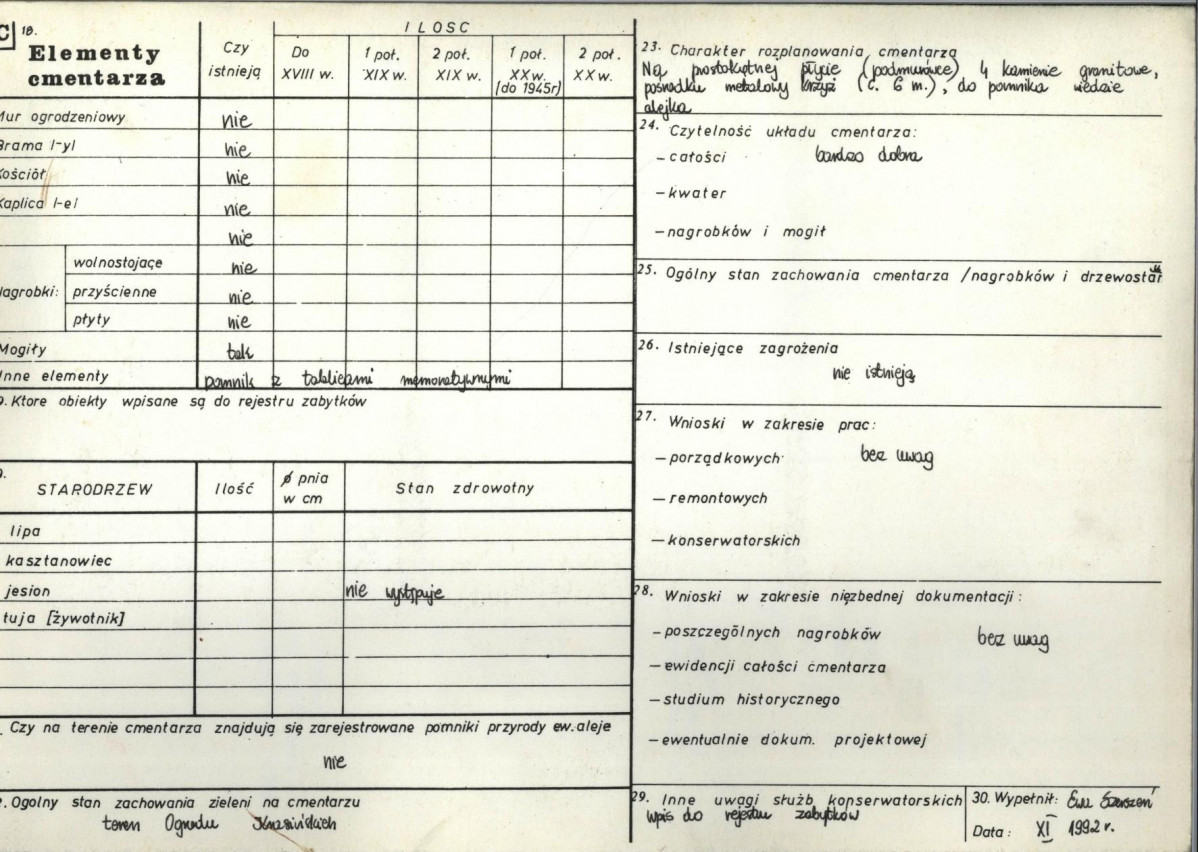 C 18.
Elementy
cmentarza
Czy
istnieją
ILOŚC
Do
XVIII w.
1 poł.
XIX w.
2 poł.
XIX w.
1 poł.
XX w.
(do 1945r)
2 poł.
XX w.
Mur ogrodzeniowy nie
Brama /-y/ nie
Kościół nie
Kaplica /-e/ nie
nie
Nagrobki: wolnostojące nie
przyścienne nie
płyty nie
Mogiły tak
Inne elementy pomnik z tablicami memoratywnymi
9. Ktore obiekty wpisane są do rejestru zabytków
STARODRZEW Ilość ø pnia
w cm Stan zdrowotny
lipa
kasztanowiec
jesion nie występuje
tuja [żywotnik]
Czy na terenie cmentarza znajdują się zarejestrowane pomniki przyrody ew. aleje
nie
Ogolny stan zachowania zieleni na cmentarzu
teren Ogrodu Krasińskich
23. Charakter rozplanowania cmentarza
Na prostokątnej płycie (podmurówce) 4 kamienie granitowe,
pośrodku metalowy krzyż (c. 6 m.), do pomnika wiedzie
alejka
24. Czytelność układu cmentarza:
- całości bardzo dobra
- kwater
- nagrobków i mogił
25. Ogólny stan zachowania cmentarza /nagrobków i drzewostan
26. Istniejące zagrożenia
nie istnieją
27. Wnioski w zakresie prac:
- porządkowych bez uwag
- remontowych
- konserwatorskich
28. Wnioski w zakresie nięzbednej dokumentacji:
- poszczególnych nagrobków bez uwag
- ewidencji całości cmentarza
- studium historycznego
- ewentualnie dokum. projektowej
29. Inne uwagi służb konserwatorskich
wpis do rejestru zabytków
30. Wypełnił: Ewa
Data: XI 1992 r.